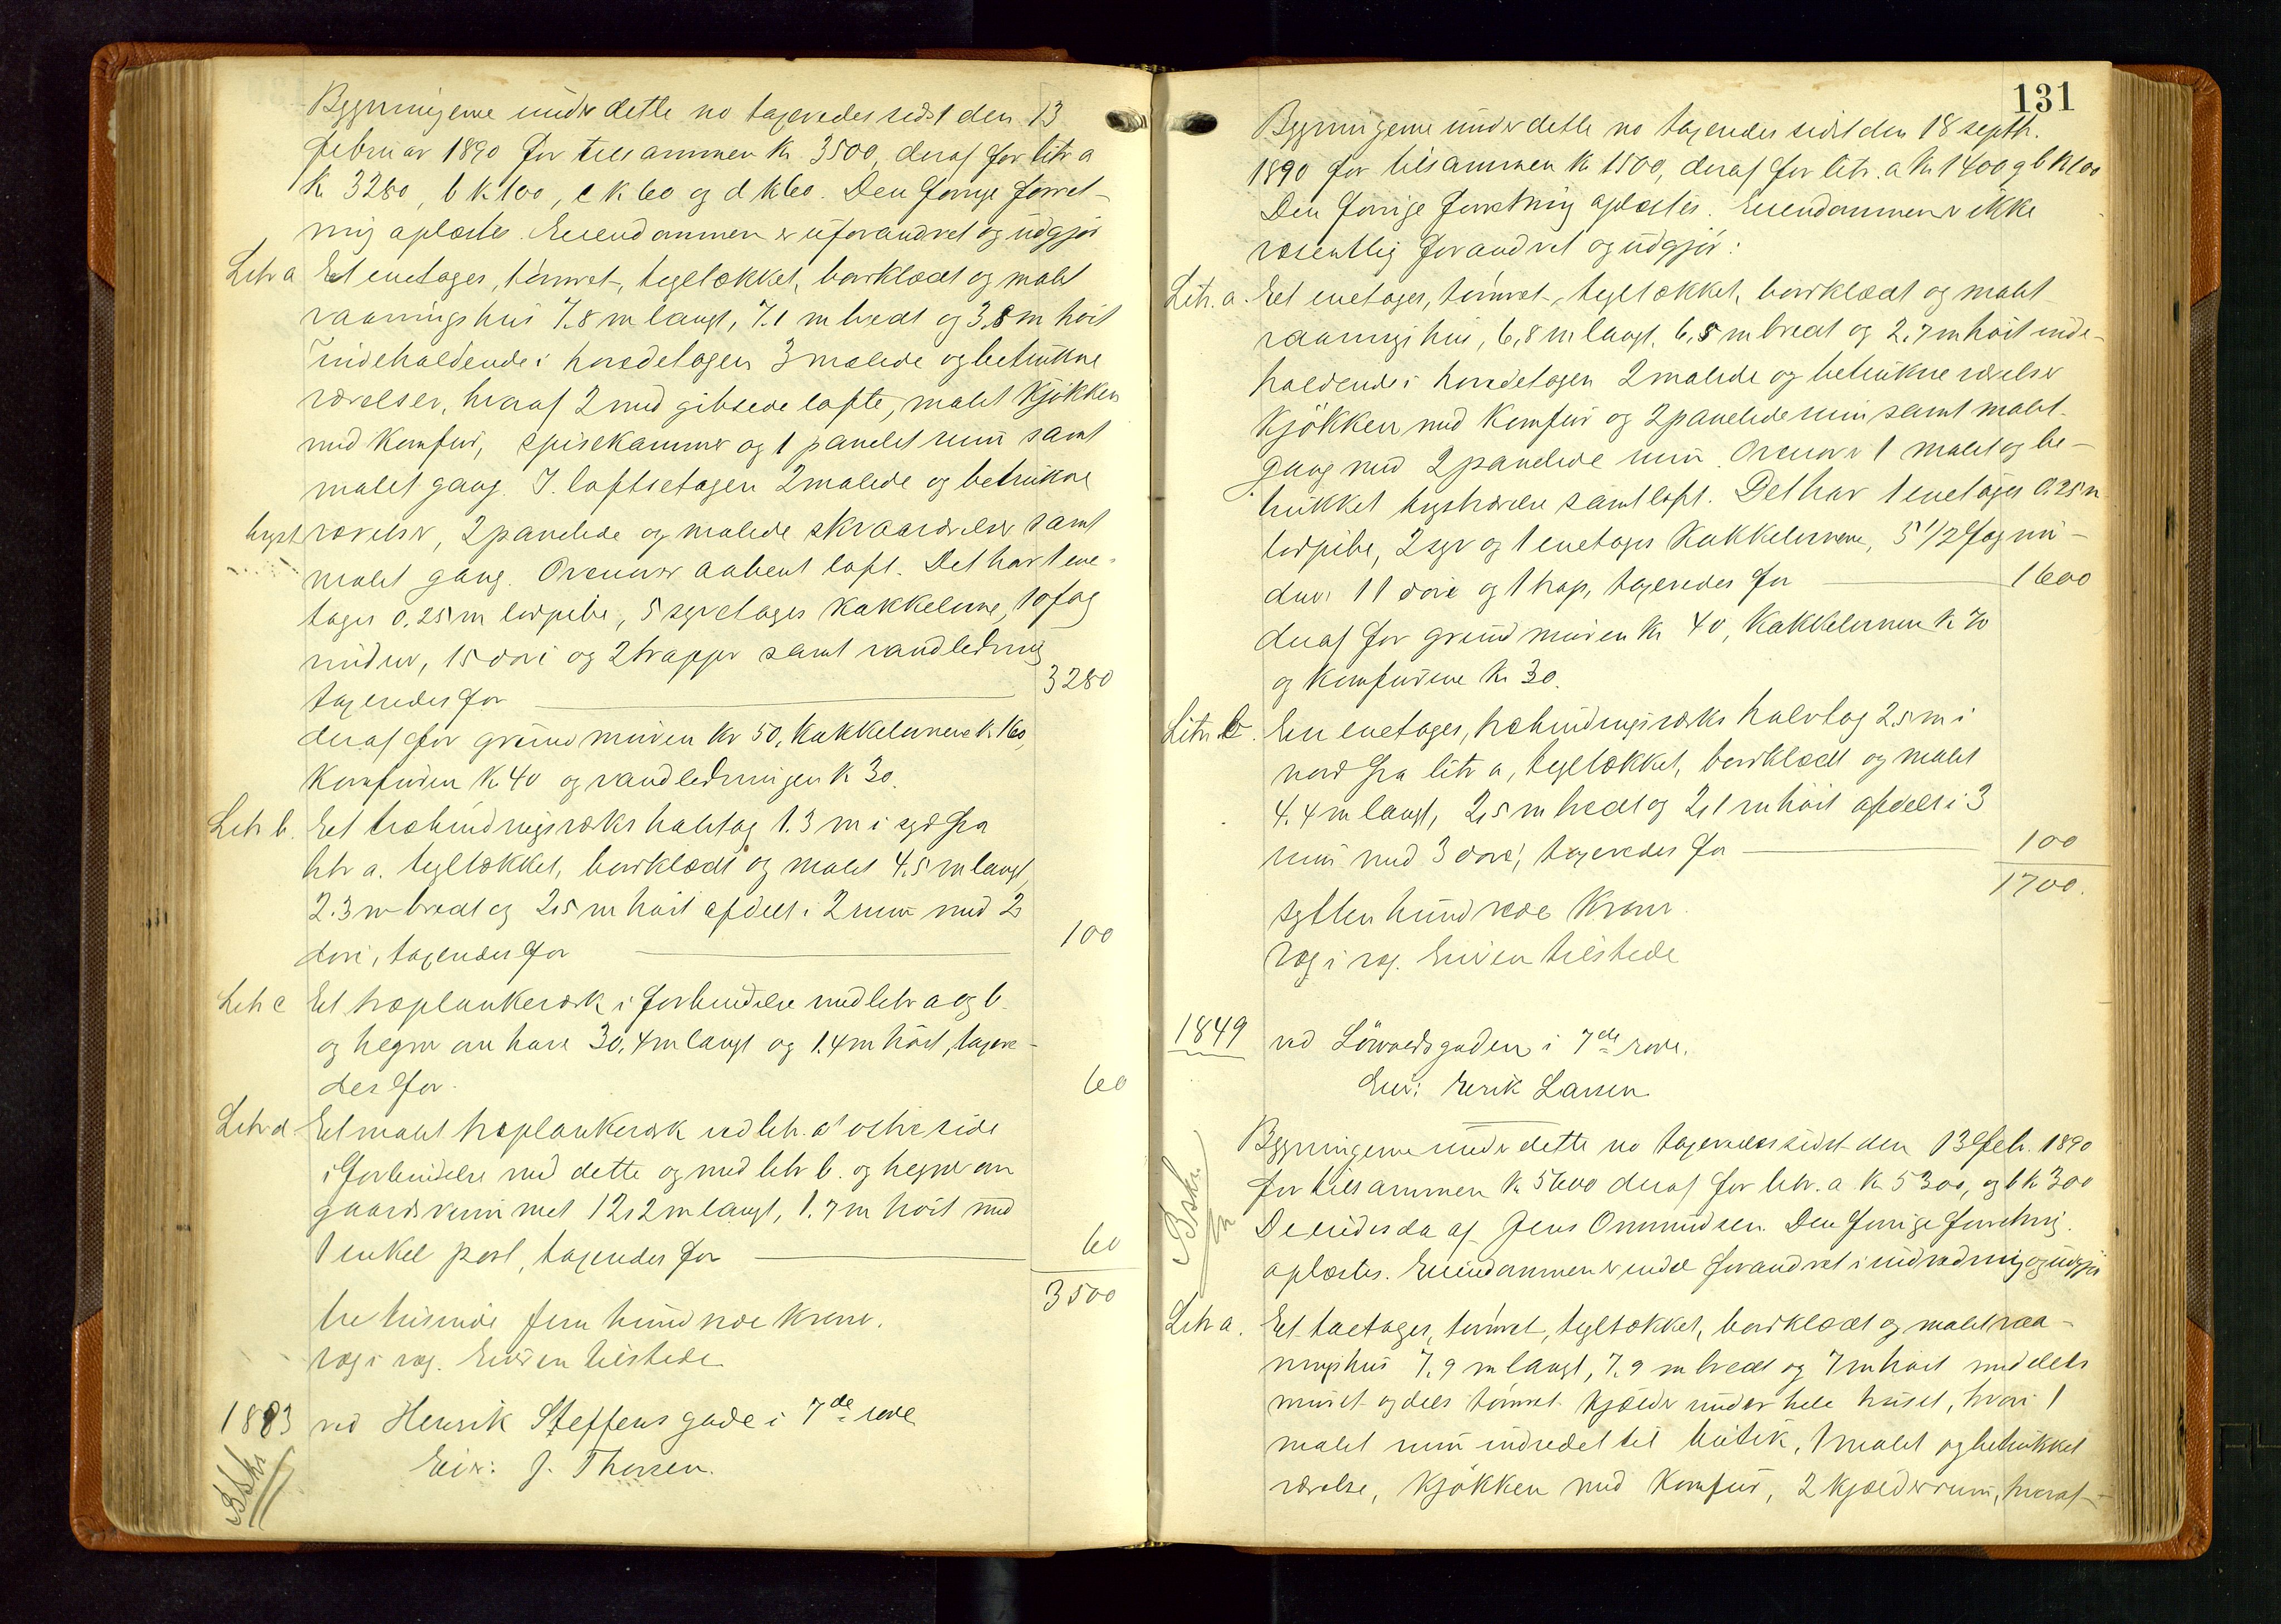 Bygningerne under dette no taxeredes sidst den 13
februar 1890 for tilsammen Kr. 3500, deraf for litr a
Kr 3280, b k 100, c k 60 og d k 60. Den forrige forret-
ning oplæstes. Eiendommen er uforandret og udgjør
Litr a Et enetages, tømret, tegltækket, bordklædt og malet
vaaningshus 7.8 m langt, 7.1 m bredt og 3,8 m høit
indeholdende i hovedetagen 3 malede og betrukne
værelser, hvoraf 2 med gibsede lofte, malet kjøkken
med komfur, spisekammer og 1 panelet rum samt
malet gang. I loftsetagen 2 malede og betrukne
kvist værelser, 2 panelede og malede skraaværelser samt
malet gang. Ovenover aabent loft. Det har 1 ene-
tages 0.25 m bredpibe, 5 syvetages kakkelovne, 10 fag
vinduer, 15 døre og 2 trapper samt vandledning
taxeredes for 3280
deraf for grundmuren kr 50, kakkelovnene k. 160,
komfuren k. 40 og vandledningen k 30.
Litr b. Et træbindingsverks halvtag 1.3 m i syd fra
litr a. tegltækket, bordklædt og malet 4.5 m langt,
2.3 m bredt og 2,5 m høit afdelt i 2 rum med 2
døre, taxeredes for 100
Litr c Et træplankeværk i forbindelse med litr a og b.
og hegner om have 30,4 m langt og 1.4 m høit, taxere-
des for. 60
Litr d Et malet træplankeværk ved litr. a's østre side
i forbindelse med dette og med litr b. og hegner om
gaardsrummet 12,2 m langt, 1.7 m høit med
1 enkel port, taxeredes for 60
3500
tre tusinde fem hundrede kroner.
væg i væg. Eieren tilstede
1883 ved Henrik Steffens gade i 7de rode
Eier: J. Thorsen.
131
Bygningerne under dette no taxeredes sidst den 18 septbr.
1890 for tilsammen Kr 1500, deraf for litr. a kr 1400 og b k 100
Den forrige forretning oplæstes. Eiendommen er ikke
væsentlig forandret og udgjør:
Litr. a. Et enetages, tømret, tegltækket, bordklædt og malet
vaaningshus, 6,8 m langt, 6,5 m bredt og 2.7 m høit inde-
holdende i hovedetagen 2 malede og betrukne værelser
kjøkken med komfur og 2 panelede rum samt malet
gang med 2 panelede rum. Ovenover 1 malet og be-
trukket kvistværelse samt loft. Det har 1 enetages 0.25 m
bredpibe, 2 syv og 1 enetages kakkelovnene, 5 1/2 fag vin-
duer 11 døre og 1 trap, taxeredes for 1600
deraf for grundmuren kr 40, kakkelovnene k 70
og komfurene kr 30.
Litr. b. En enetages, træbindingsværks halvtag 2.5 m i
nord fra litr a, tegltækket, bordklædt og malet
4.4 m langt, 2,5 m bredt og 2,1 m høit afdelt i 3
rum med 3 døre, taxeredes for 100
1700.
sytten hundrede kroner.
væg i væg. Eieren tilstede
1849 ved Løwoldsgaden i 7de rode.
Eier: Erik Larsen
Bygningerne under dette no taxeredes sidst den 13 febr. 1890
for tilsammen k. 5600 deraf for litr. a k. 5300, og b k 300
De eiedes da af Jens Ommundsen. Den forrige forretning
oplæstes. Eiendommen er endel forandret i indredning og udgjør
Litr a. Et toetages, tømret, tegltækket, bordklædt og malet vaa-
ningshus 7.9 m langt, 7.9 m bredt og 7 m høit med dels
muret og dels tømret kjælder under hele huset, hvori 1
malet rum indredet til butik, 1 malet og betrukket
værelse, kjøkken med komfur, 2 kjælderrum, hvoraf